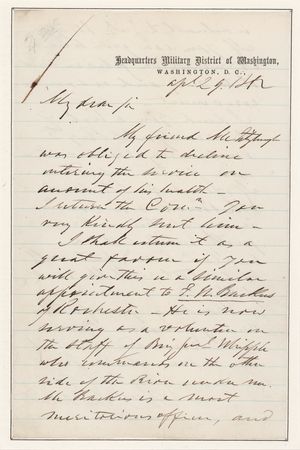 Headquarters Military District of Washington,
WASHINGTON, D. C.,
Apl 29. 1862
My dear Sir
My friend Mr Fitzhugh
was obliged to decline
entering the service on
account of his health —
I return the Comn. You
very kindly sent him —
I shall esteem it as a
great favour if you
will give this or a similar
appointment to E. N. Backus
of Rochester — He is now
serving as a volunteer on
the Staff of Brig Genl Whipple
who commands on the other
side of the River under me.
Mr Backus is a most
meritorious officer, and